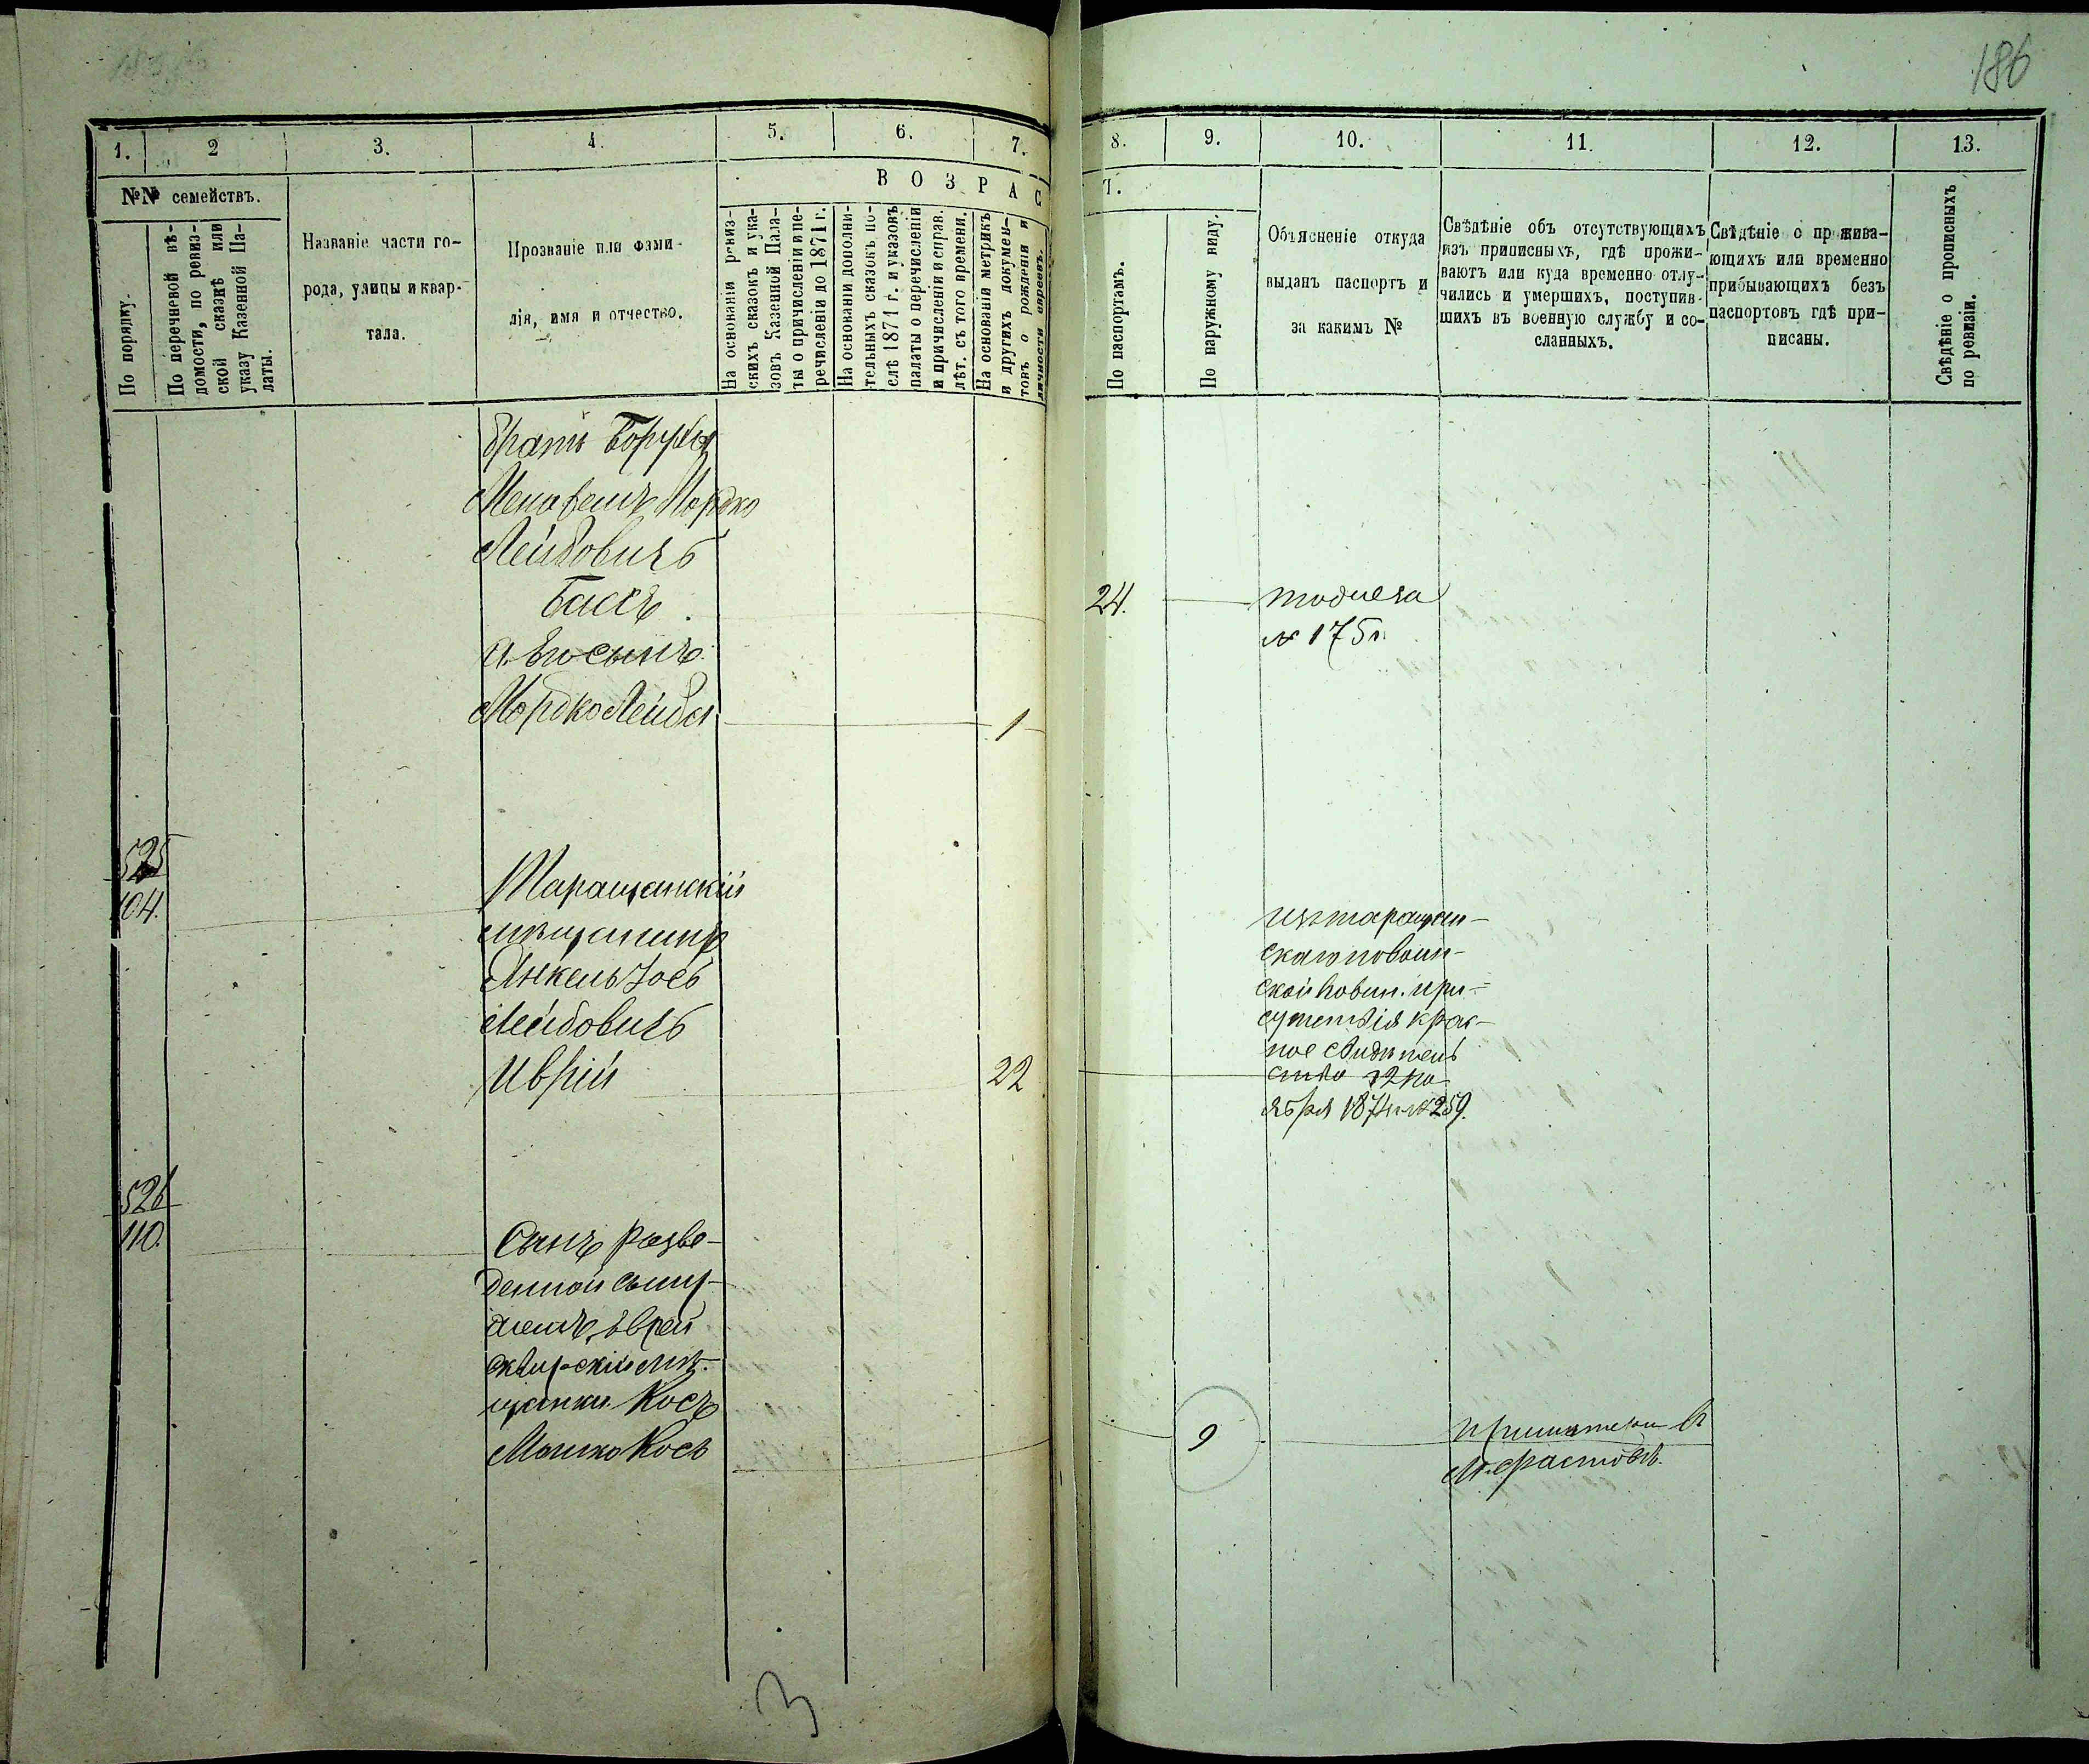 186
1.
2
3.
4.
5.
6.
7.
8.
9.
10.
11.
12.
13.
№№ семействъ.
По порядку.
По перечневой вѣ-
домости, по ревиз-
ской сказкѣ или
указу Казенной Па-
латы.
Названіе части го-
рода, улицы и квар-
тала.
Прозваніе или фами-
лія, имя и отчество.
ВОЗРАС
Т.
На основаніи ревиз-
скихъ сказокъ и ука-
зовъ Казенной Пала-
ты о причисленіи и пе-
речисленіи до 1871 г.
На основаніи дополни-
тельныхъ сказокъ по-
слѣ 1871 г. и указовъ
палаты о перечисленіи
и причисленіи и справ.
лѣт. съ того времени.
На основаніи метрикъ
и другихъ докумен-
товъ о рожденіи и
личности евреевъ.
По паспортамъ.
По наружному виду.
Объясненіе откуда
выданъ паспортъ и
за какимъ №
Свѣдѣніе объ отсутствующихъ
изъ приписныхъ, гдѣ прожи-
ваютъ или куда временно отлу-
чились и умершихъ, поступив-
шихъ въ военную службу и со-
сланныхъ.
Свѣдѣніе о прожива-
ющихъ или временно
прибывающихъ безъ
паспортовъ гдѣ при-
писаны.
Свѣдѣніе о прописныхъ
по ревизіи.
братъ Боруха
Мордко
Лейбовичъ
Басъ
24.
№ 175
Его сынъ
Мордко Лейба
1
525
104.
Таращанскій
мѣщанинъ
Янкель Іосъ
Лейбовичъ
Иврій
22
изъ таращан-
скаго по воин-
ской повин. при-
сутствія крас-
ное свидѣтель
ство 12 но
ября 1874 г. № 259.
526
110.
Сынъ разве-
денной съ му-
жемъ еврей
сквирскій мѣ-
щанки Косъ
Мошко Косъ
9
м. Фастовъ.
3